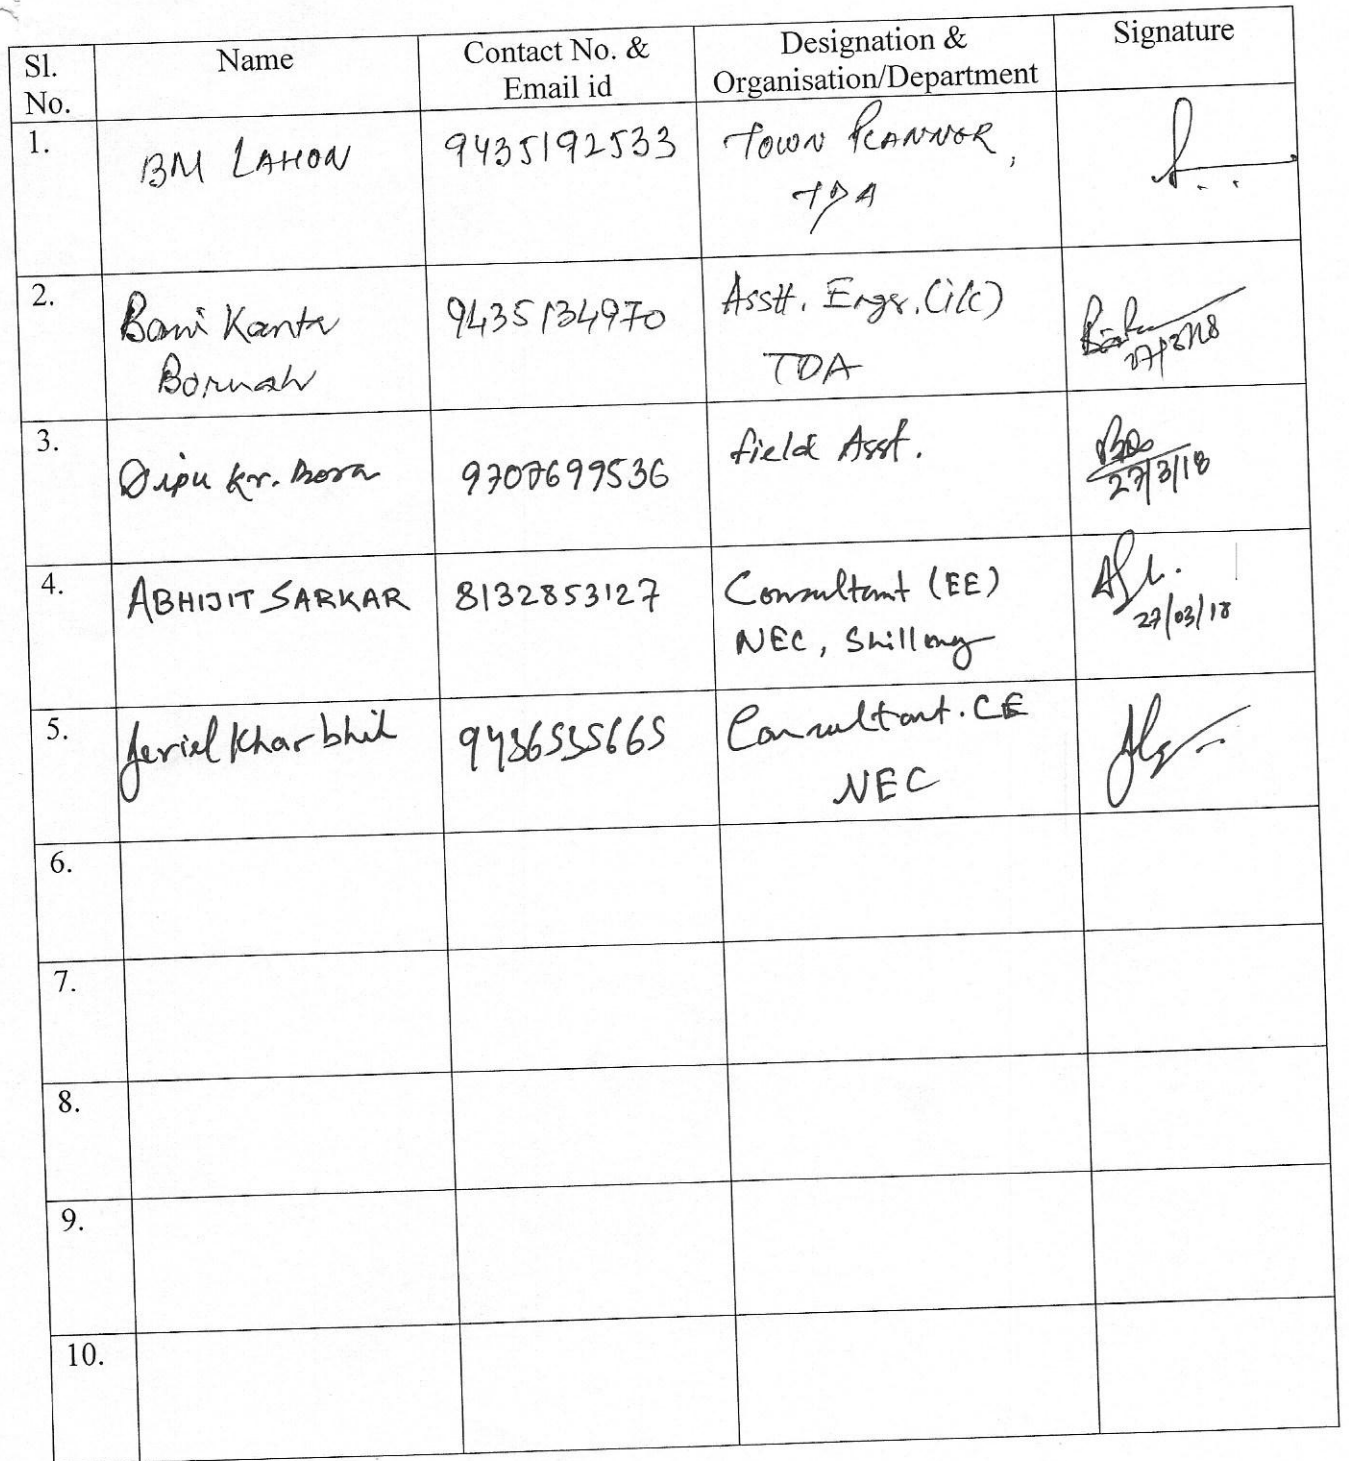 Sl. No.
Name
Contact No. & Email id
Designation & Organisation/Department
Signature
1.
BM LAHON
9435192533
TOWN PLANNOR,
TDA
2.
Bani Kanta
Boruah
9435134970
Asstt. Engr. (i/c)
TDA
27/3/18
3.
Dipu Kr. Bora
9707699536
field Asst.
27/3/18
4.
ABHIJIT SARKAR
8132853127
Consultant (EE)
NEC, Shillong
27/03/18
5.
Jeriel Kharbhih
Consultant. CE
NEC
6.
7.
8.
9.
10.